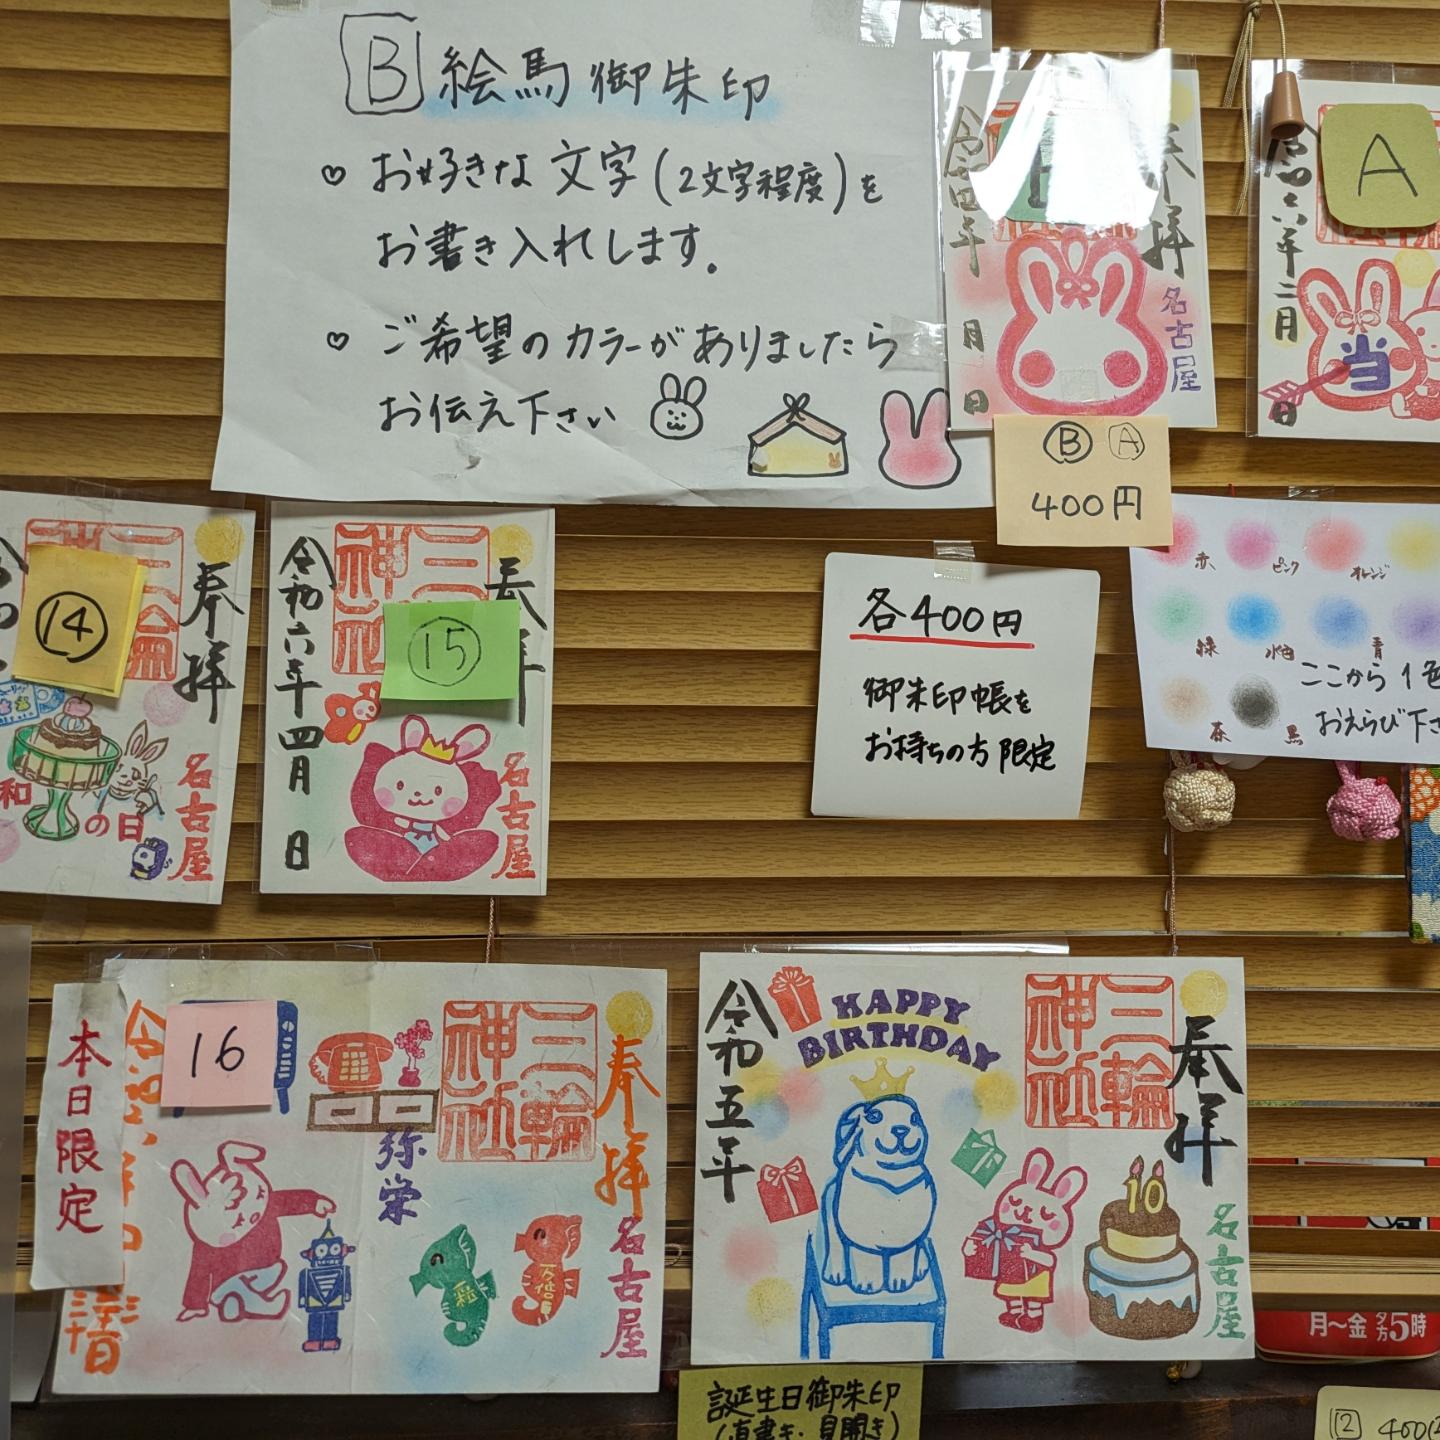 B 絵馬御朱印
♡ お好きな文字(2文字程度)を
お書き入れします。
♡ ご希望のカラーがありましたら
お伝え下さい
奉拝
名古屋
月
日
Ⓑ Ⓐ
400円
A
六年二月
当
日
赤 ピンク オレンジ
緑 水色 青
茶 黒
ここから1色
おえらび下さ
各400円
御朱印帳を
お持ちの方限定
⑭
奉拝
和の日
名古屋
⑮
奉拝
三輪神社
令和六年四月 日
名古屋
本日限定
16
奉拝
三輪神社
弥栄
名古屋
奉拝
三輪神社
HAPPY
BIRTHDAY
10
令和五年
名古屋
誕生日御朱印
(直書き・見開き)
月〜金 夕方5時
12 400円